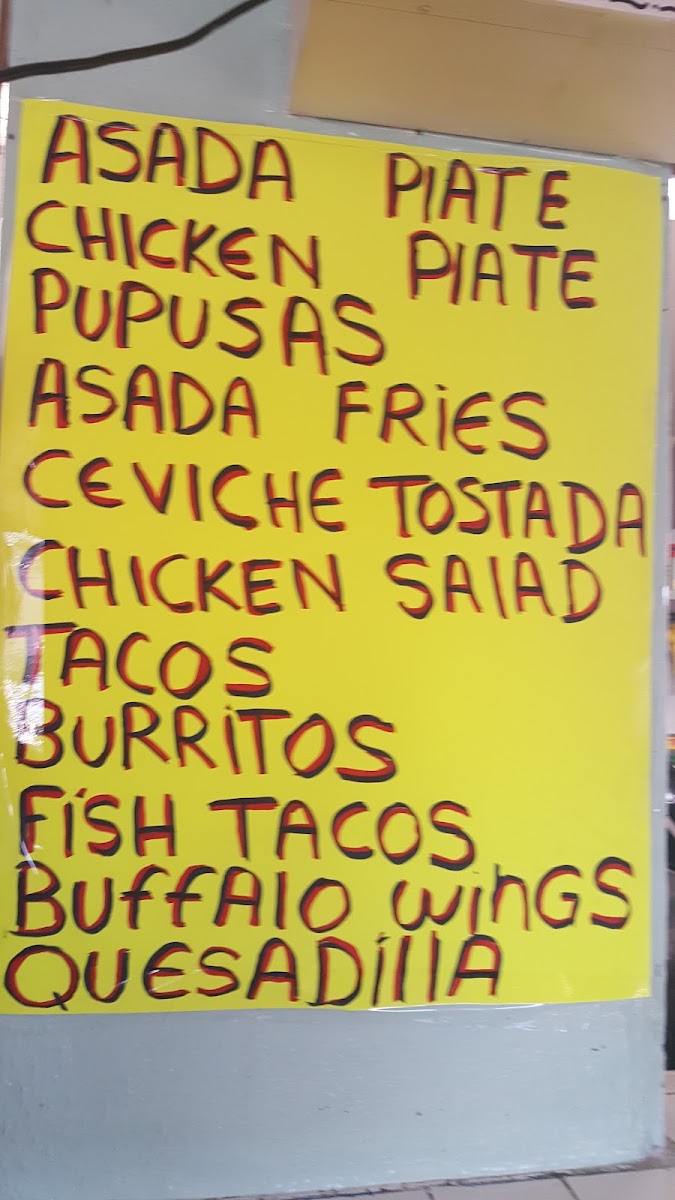 ASADA PlATE
CHICKEN PlATE
PUPUSAS
ASADA FRiES
CEVICHE TOSTADA
CHICKEN SAlAD
TACOS
BURRiTOS
FiSH TACOS
BuffAlo winGS
QUESADillA